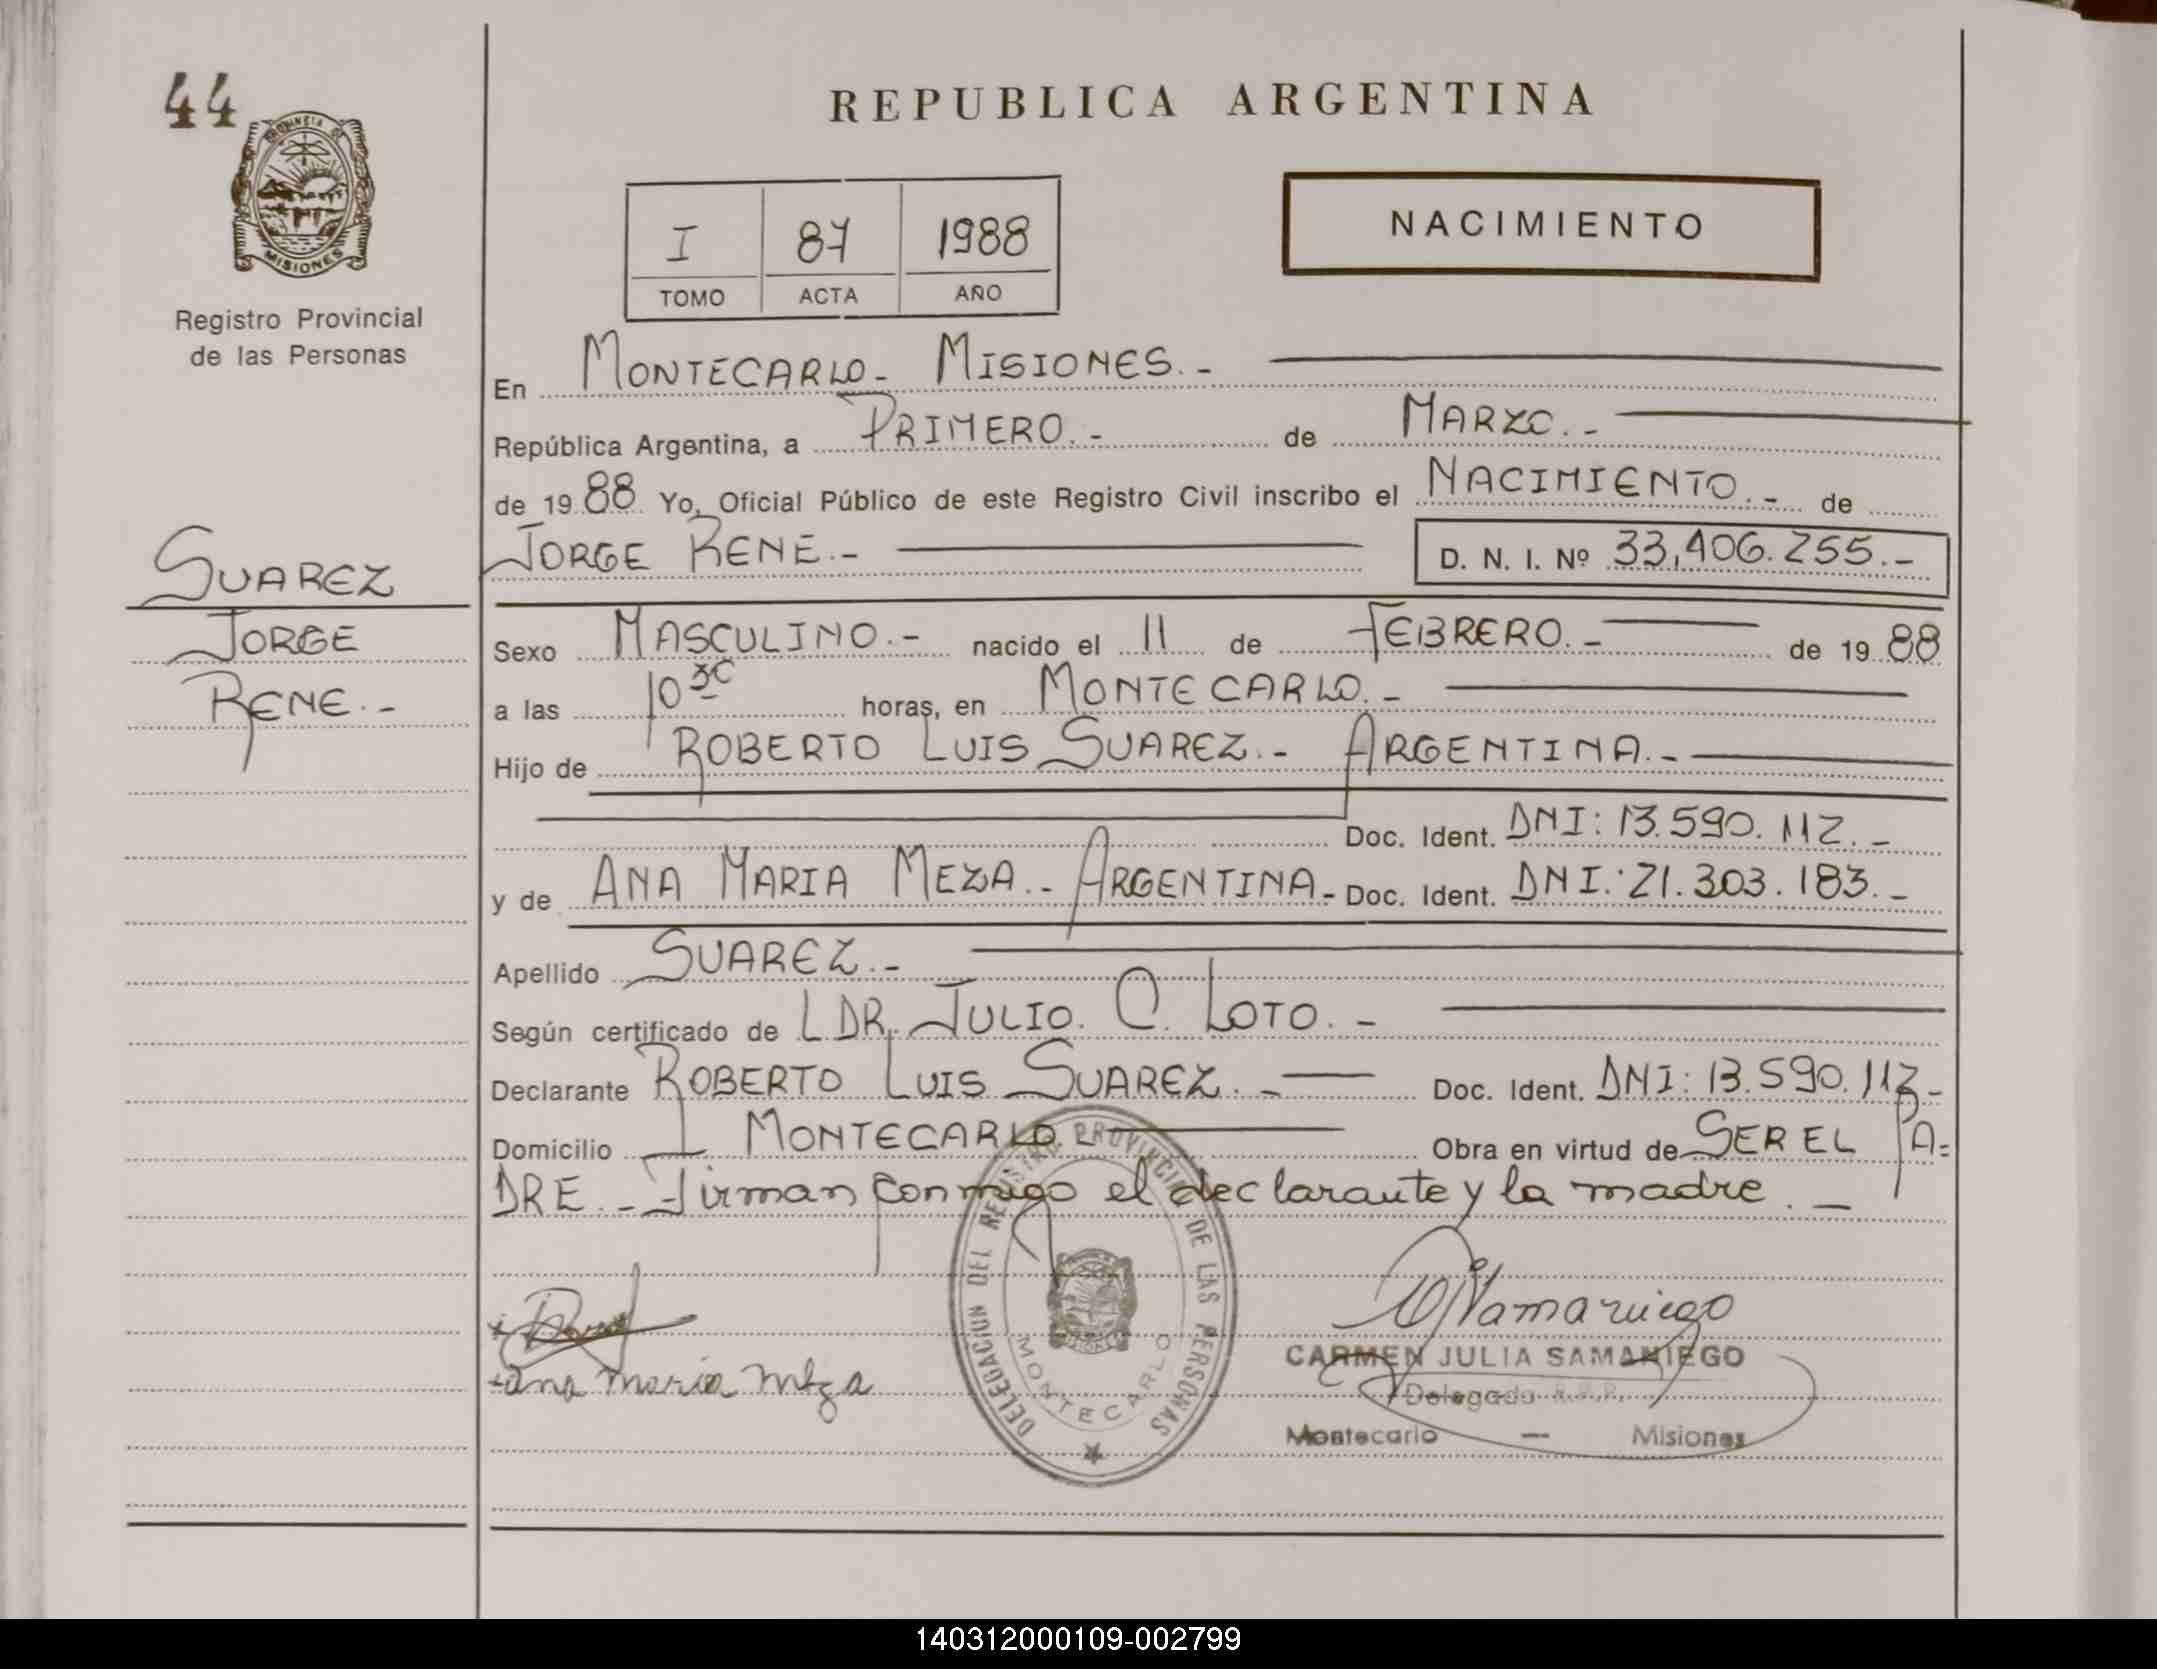 44
PROVINCIA DE
MISIONES
Registro Provincial
de las Personas
SUAREZ
JORGE
RENE.-
REPUBLICA ARGENTINA
I 87 1988
TOMO ACTA AÑO
NACIMIENTO
En MONTECARLO- MISIONES.-
República Argentina, a PRIMERO.- de MARZO.-
de 1988 Yo, Oficial Público de este Registro Civil inscribo el NACIMIENTO.- de
JORGE RENE.- D. N. I. Nº 33,406.255.-
Sexo MASCULINO.- nacido el 11 de FEBRERO.- de 1988
a las 10 30 horas, en MONTECARLO.-
Hijo de ROBERTO LUIS SUAREZ.- ARGENTINA.-
Doc. Ident. DNI: 13.590.112.-
y de ANA MARIA MEZA.- ARGENTINA- Doc. Ident. DNI: 21.303.183.-
Apellido SUAREZ.-
Según certificado de LDR. JULIO. C. LOTO.-
Declarante ROBERTO LUIS SUAREZ.- Doc. Ident. DNI: 13.590.112-
Domicilio MONTECARLO Obra en virtud de SER EL PA=
DRE.- Firman conmigo el declarante y la madre.-
DELEGACION DEL REGISTRO PROVINCIAL DE LAS PERSONAS
MONTECARLO
Ana Maria Meza
CJSamaniego
CARMEN JULIA SAMANIEGO
Delegada R.P.P.
Montecarlo — Misiones
140312000109-002799